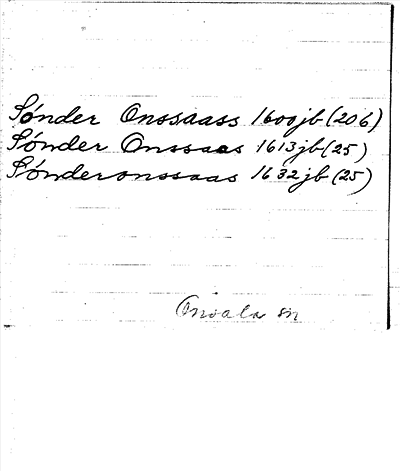 Sønder Onssaass 1600jb(206)
Sønder Onssaas 1613jb(25)
Sønderonssaas 1632jb(25)
Onsala sn